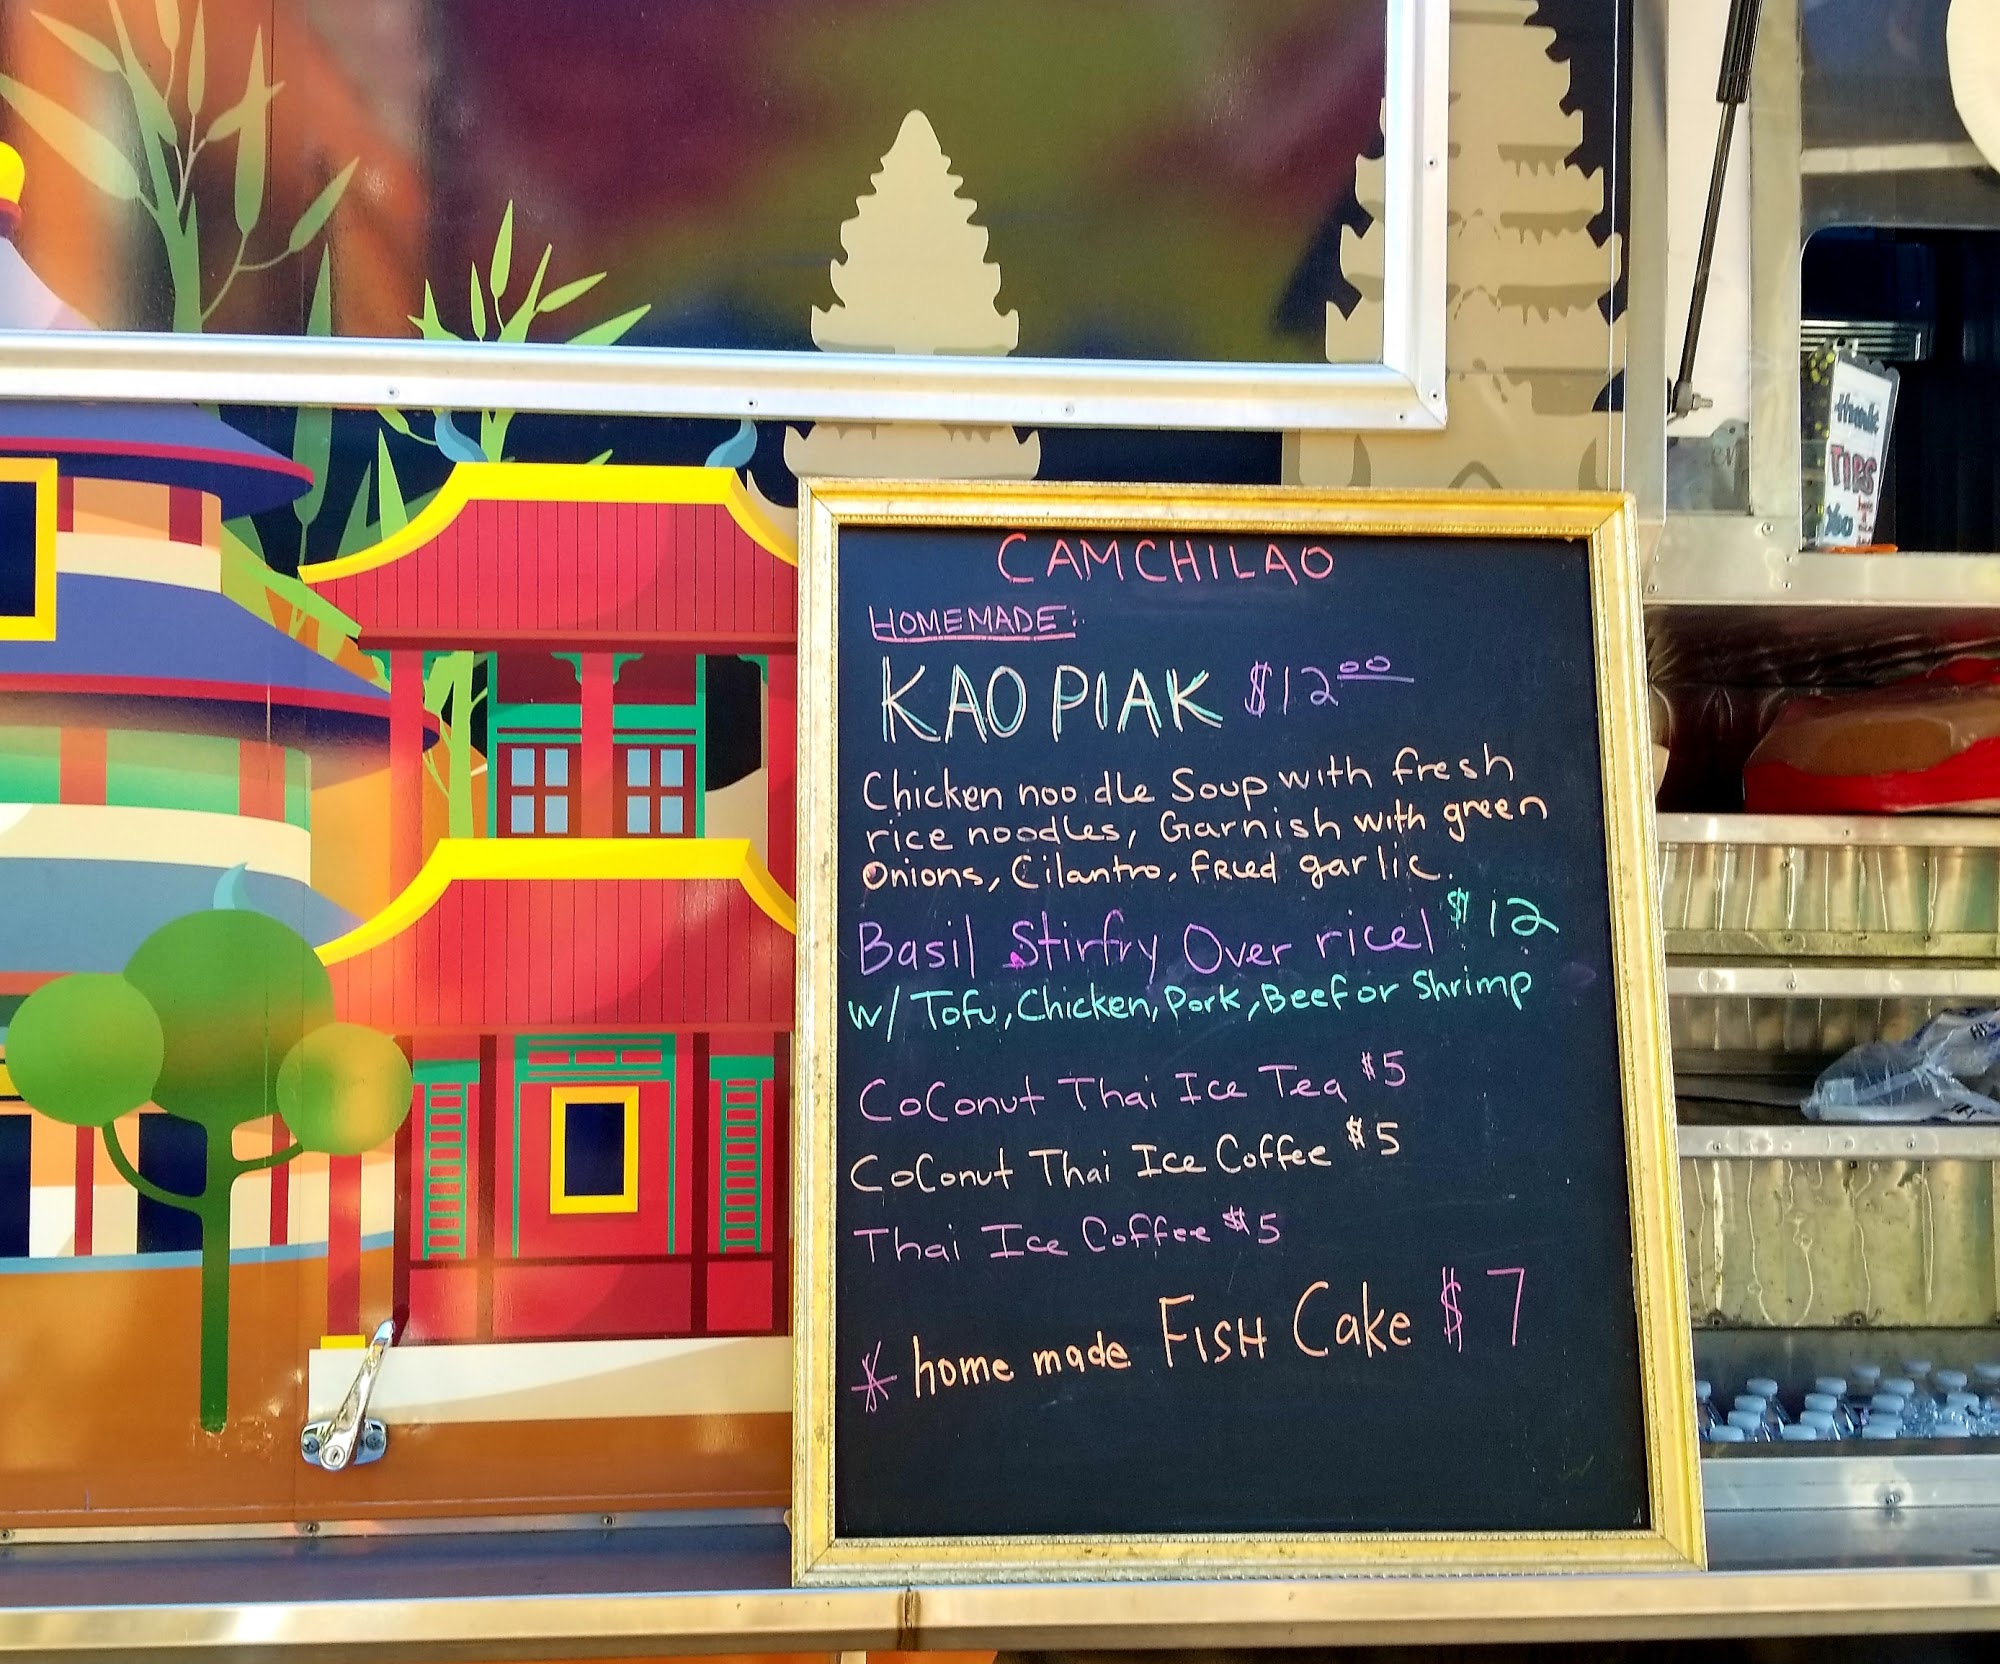 CAMCHILAO
HOMEMADE:
KAO PIAK $12.00
Chicken noodle Soup with fresh
rice noodles, Garnish with green
Onions, Cilantro, fried garlic.
Basil Stirfry Over rice $12
w/ Tofu, Chicken, Pork, Beef or Shrimp
CoConut Thai Ice Tea $5
CoConut Thai Ice Coffee $5
Thai Ice Coffee $5
* home made FISH Cake $7
thank
TIPS
You